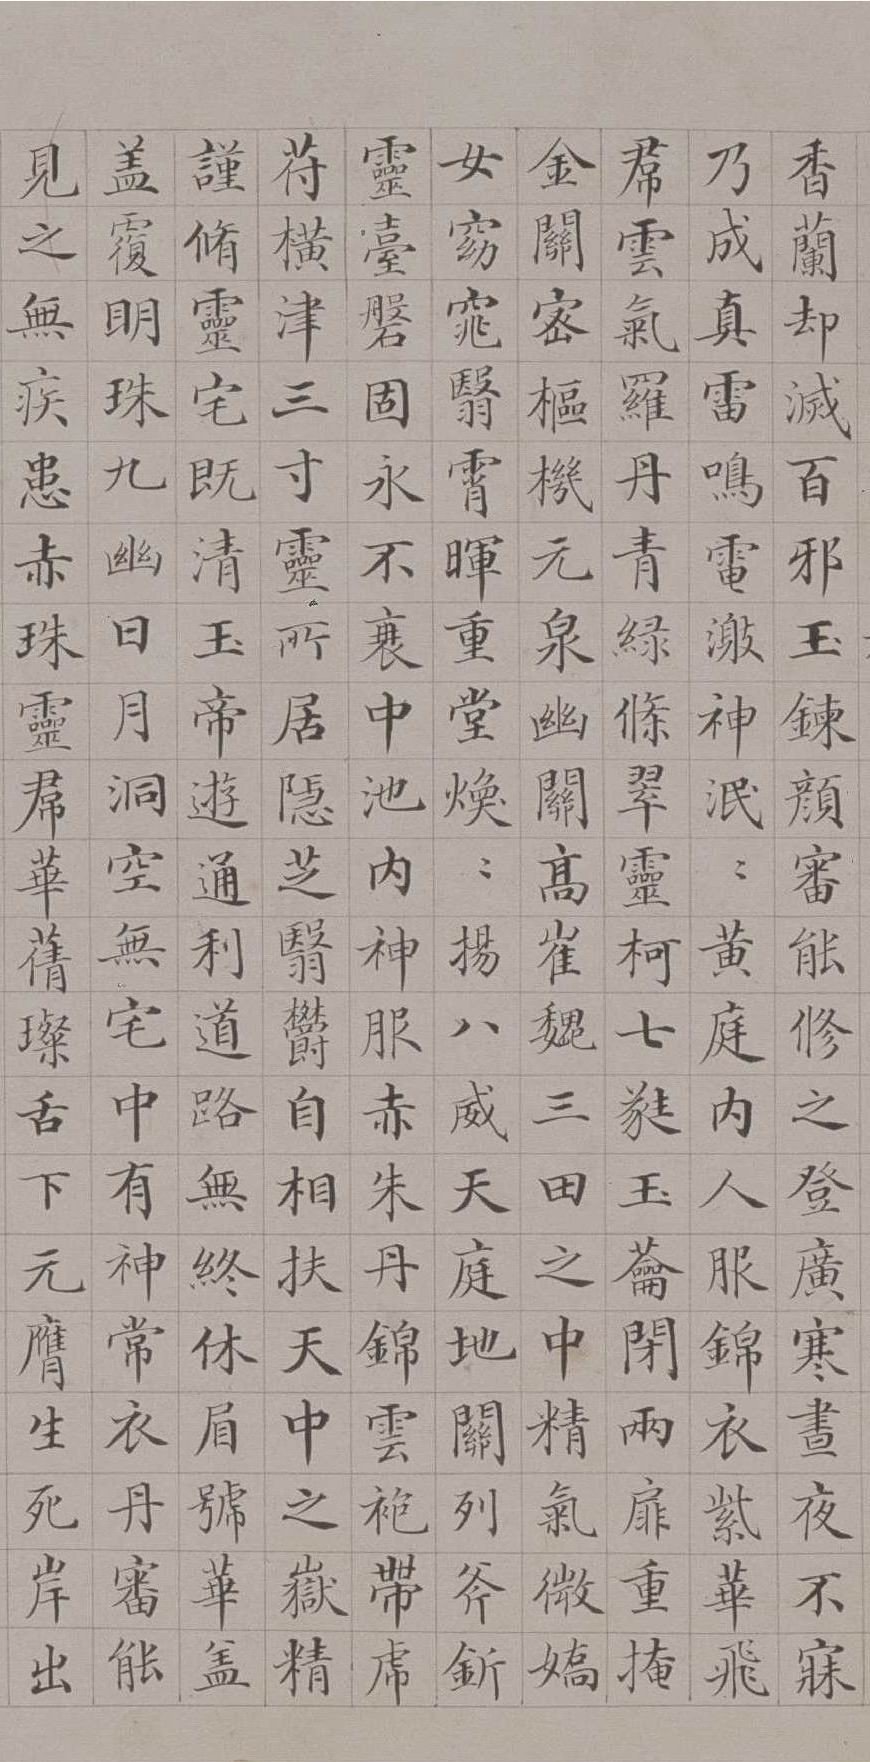 香蘭却滅百邪玉鍊顔審能修之登廣寒晝夜不寐
乃成真雷鳴電激神泯〻黄庭内人服錦衣紫華飛
帬雲氣羅丹青緑條翠靈柯七蕤玉蘥閉兩扉重掩
金關密樞機元泉幽關髙崔巍三田之中精氣微嬌
女窈窕翳霄暉重堂煥〻揚八威天庭地關列斧釿
靈臺磐固永不衰中池内神服赤朱丹錦雲袍帶虎
苻橫津三寸靈所居隠芝翳欝自相扶天中之嶽精
謹脩靈宅既清玉帝遊通利道路無終休眉號華盖
盖覆明珠九幽日月洞空無宅中有神常衣丹審能
見之無疾患赤珠靈帬華蒨璨舌下元膺生死岸出